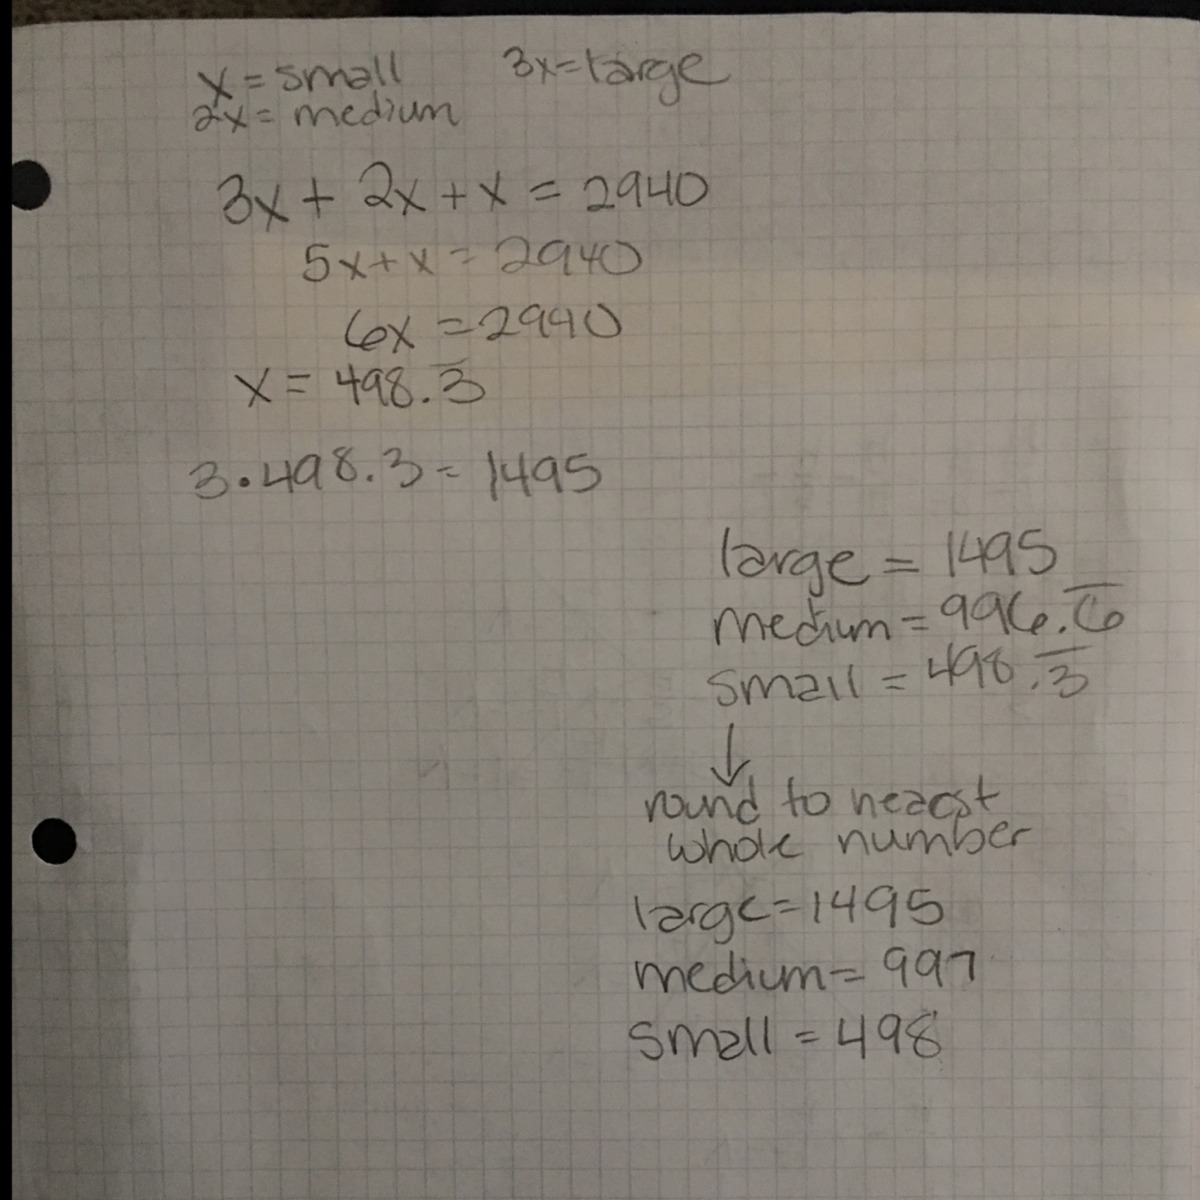 x = small 3x = large
2x = medium
3x + 2x + x = 2940
5x + x = 2940
6x = 2990
x = 498.3̅
3 • 498.3 = 1495
large = 1495
medium = 996.6̅
small = 498.3̅
↓
round to nearst
whole number
large = 1495
medium = 997
small = 498